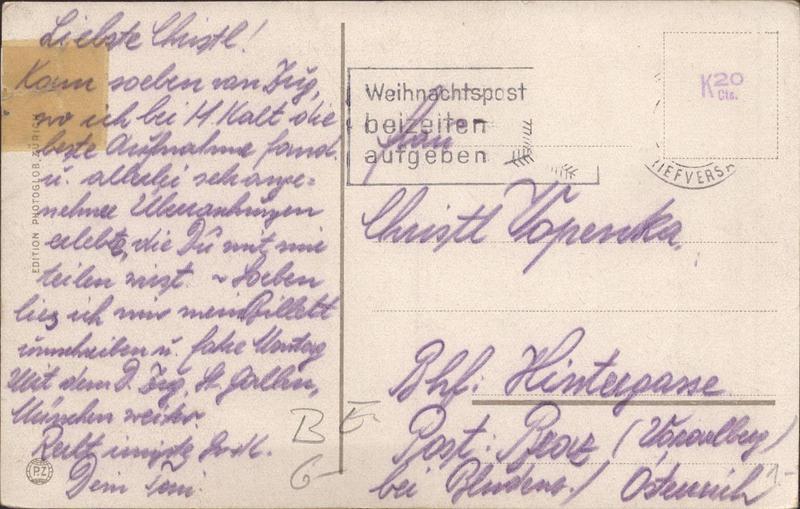 Liebste Christl!
Kam soeben von Zug,
wo ich bei H. Kalt die
beste Aufnahme fand
u. allerlei sehr ange=
nehme Überraschungen
erlebte, die Du mit mir
teilen wirst. ~ Soeben
lies ich mir mein Billett
umschreiben u. fahre Montag
Mit dem D. Zug, St. Gallen,
München weiter.
Recht innigste
Dein Toni.
EDITION PHOTOGLOB, ZÜRICH
PZ
Weihnachtspost
beizeiten
aufgeben
K20
Cts.
IEFVERS
Frau
Christl Vopenka
Bhf: Hintergasse
Post: Braz (Vorarlberg)
bei Bludenz / Österreich
B E-
6-
1.-